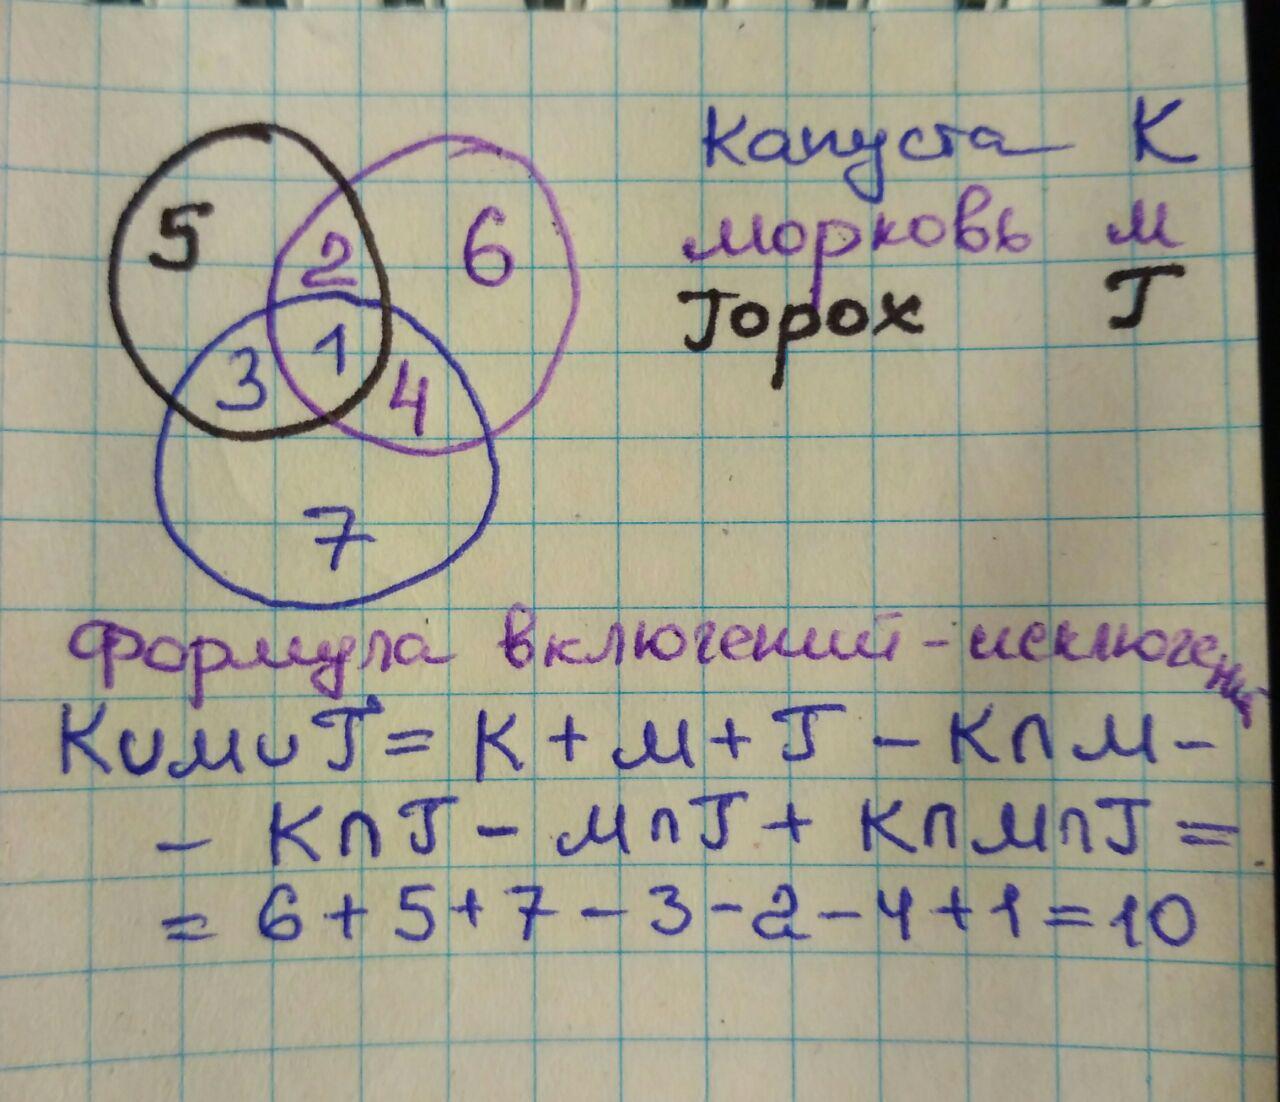 Капуста К
морковь м
Горох Г
5
2
6
3
1
4
7
Формула включений-исключений
К∪м∪Г = К + м + Г - К∩м -
- К∩Г - м∩Г + К∩м∩Г =
= 6 + 5 + 7 - 3 - 2 - 4 + 1 = 10